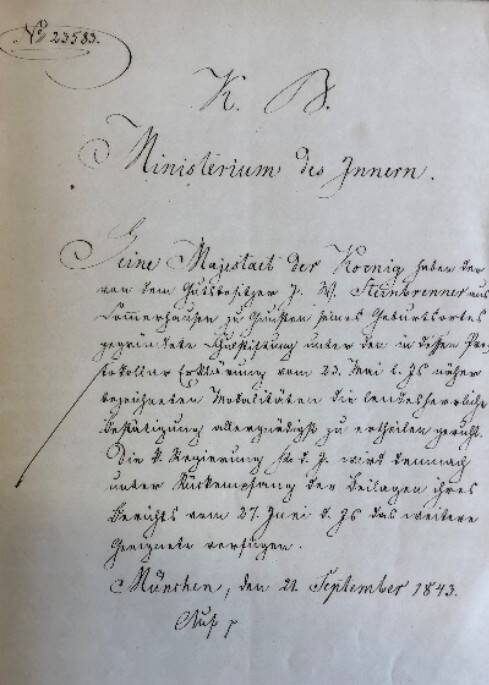 No 23583.
K. B.
Ministerium des Innern.
Seine Majestaet der Koenig haben der
von dem Gutsbesitzer J. W. Steinbrenner aus
Sommerhausen zu Gunsten seines Geburtsortes
gegründete Schulstiftung unter den in dessen Pro,
tokollar Erklärung vom 23. Mai l. Js näher
bezeichneten Modalitäten die landesherrliche
Bestätigung allergnädigst zu ertheilen geruht.
Die k. Regierung K. d. J. wird demnach
unter Rückempfang der Beilagen ihres
Berichts vom 27. Juni d. Js das weitere
Geeignete verfügen.
München, den 21. September 1843.
Auf